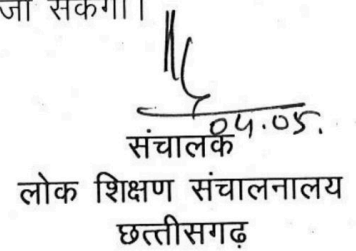 जा सकेगा।
04.05.
संचालक
लोक शिक्षण संचालनालय
छत्तीसगढ़